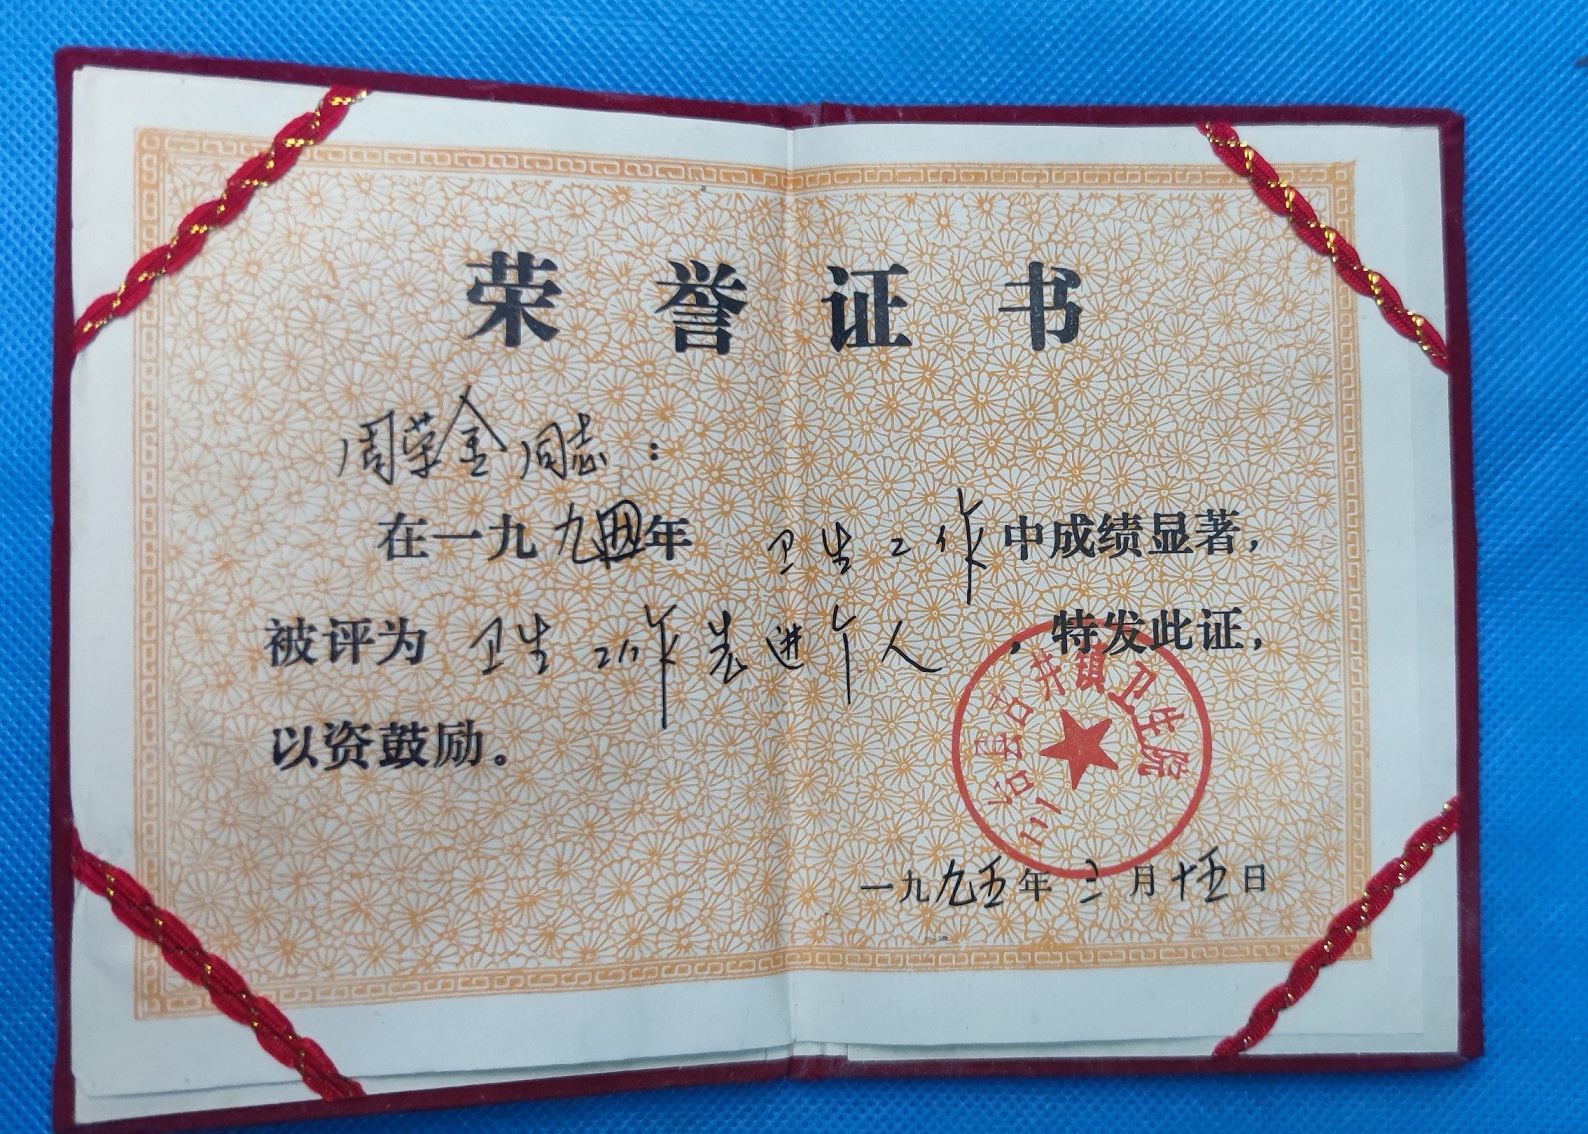 荣誉证书
周荣金同志：
在一九九四年 卫生工作中成绩显著，
被评为 卫生工作先进个人 ，特发此证，
以资鼓励。
井镇卫生院
一九九五年三月十五日